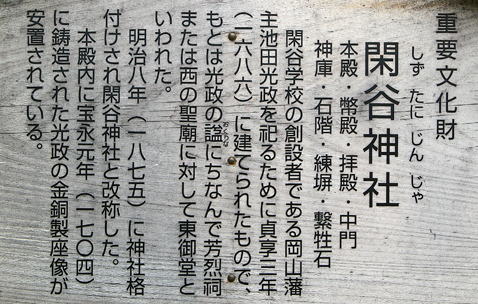 重要文化財
しず たに じん じゃ
閑谷神社
本殿・幣殿・拝殿・中門
神庫・石階・練塀・繋牲石
閑谷学校の創設者である岡山藩
主池田光政を祀るために貞享三年
（一六八六）に建てられたもので、
もとは光政の諡にちなんで芳烈祠
おくりな
または西の聖廟に対して東御堂と
いわれた。
明治八年（一八七五）に神社格
付けされ閑谷神社と改称した。
本殿内に宝永元年（一七〇四）
に鋳造された光政の金銅製座像が
安置されている。